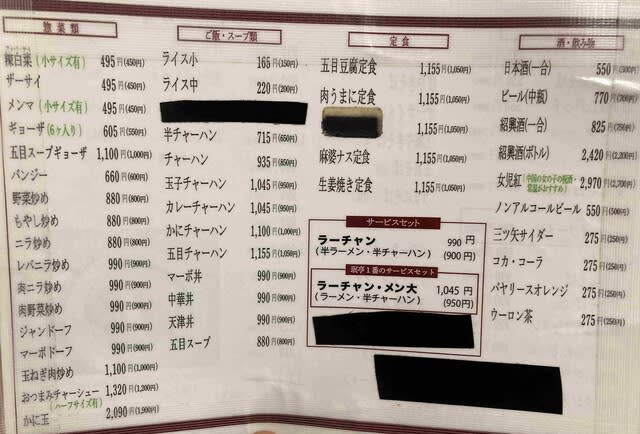 惣菜類
辣白菜(小サイズ有) 495円(450円)
ザーサイ 495円(450円)
メンマ(小サイズ有) 495円(450円)
ギョーザ(6ヶ入り) 605円(550円)
五目スープギョーザ 1,100円(1,000円)
バンジー 660円(600円)
野菜炒め 880円(800円)
もやし炒め 880円(800円)
ニラ炒め 880円(800円)
レバニラ炒め 990円(900円)
肉ニラ炒め 990円(900円)
肉野菜炒め 990円(900円)
ジャンドーフ 990円(900円)
マーボドーフ 990円(900円)
玉ねぎ肉炒め 1,100円(1,000円)
おつまみチャーシュー 1,320円(1,200円)
(ハーフサイズ有)
かに玉 2,090円(1,900円)
ご飯・スープ類
ライス小 165円(150円)
ライス中 220円(200円)
半チャーハン 715円(650円)
チャーハン 935円(850円)
玉子チャーハン 1,045円(950円)
カレーチャーハン 1,045円(950円)
かにチャーハン 1,100円(1,000円)
五目チャーハン 1,155円(1,050円)
マーボ丼 990円(900円)
中華丼 990円(900円)
天津丼 990円(900円)
五目スープ 880円(800円)
定食
五目豆腐定食 1,155円(1,050円)
肉うまに定食 1,155円(1,050円)
1,155円(1,050円)
麻婆ナス定食 1,155円(1,050円)
生姜焼き定食 1,155円(1,050円)
サービスセット
ラーチャン 990円
(半ラーメン・半チャーハン) (900円)
珉亭1番のサービスセット
ラーチャン・メン大 1,045円
(ラーメン・半チャーハン) (950円)
酒・飲み物
日本酒(一合) 550円(500円)
ビール(中瓶) 770円(700円)
紹興酒(一合) 825円(750円)
紹興酒(ボトル) 2,420円(2,200円)
女児紅(中国の女の子の祝酒・常温がおすすめ) 2,970円(2,700円)
ノンアルコールビール 550円(500円)
三ツ矢サイダー 275円(250円)
コカ・コーラ 275円(250円)
バヤリースオレンジ 275円(250円)
ウーロン茶 275円(250円)